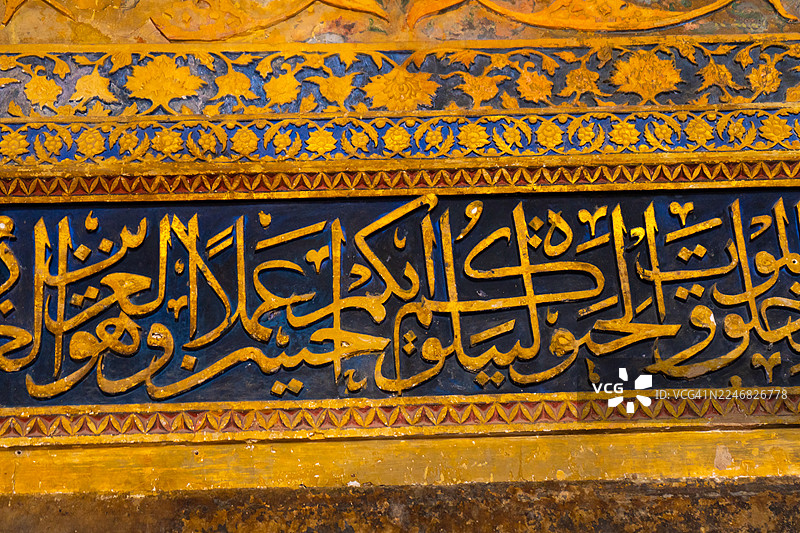 خلق الموت والحيوة ليبلوكم ايكم احسن عملا وهو العزيز
VCG VCG41N2246826778